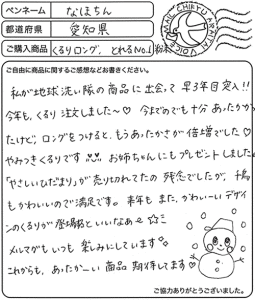 ペンネーム なほちん
都道府県 愛知県
ご購入商品 くるりロング、とれるNo.1粉末
MAIL CHIKYU ARAITAI VOICE
ご自由に商品に関するご感想などお書きください。
私が地球洗い隊の商品に出会って早3年目突入!!
今年も、くるり注文しました〜♡ 今までのでも十分あったかかっ
たけど、ロングをつけると、もうあったかさが倍増でした♡
やみつきくるりです♥♥ お姉ちゃんにもプレゼントしました。
「やさしいひだまり」が売りきれてたの残念でしたが、千鳥
もかわいいので満足です。来年もまた、かわいーいデザイ
ンのくるりが登場するといいなぁ〜☆ミ
メルマガもいつも楽しみにしています
これからも、あったか〜い商品期待してます♡
ご協力ありがとうございました。